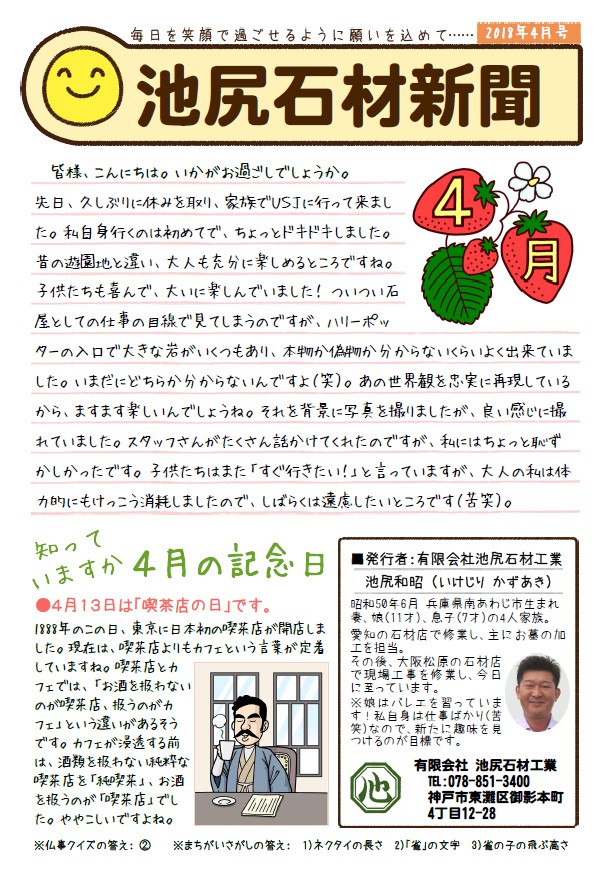 毎日を笑顔で過ごせるように願いを込めて……
2018年4月号
池尻石材新聞
皆様、こんにちは。いかがお過ごしでしょうか。
先日、久しぶりに休みを取り、家族でUSJに行って来まし
た。私自身行くのは初めてで、ちょっとドキドキしました。
昔の遊園地と違い、大人も充分に楽しめるところですね。
子供たちも喜んで、大いに楽しんでいました！ついつい石
屋としての仕事の目線で見てしまうのですが、ハリーポッ
ターの入口で大きな岩がいくつもあり、本物か偽物か分からないくらいよく出来ていま
した。いまだにどちらか分からないんですよ(笑)。あの世界観を忠実に再現している
から、ますます楽しいんでしょうね。それを背景に写真を撮りましたが、良い感じに撮
れていました。スタッフさんがたくさん話かけてくれたのですが、私にはちょっと恥ず
かしかったです。子供たちはまた「すぐ行きたい！」と言っていますが、大人の私は体
力的にもけっこう消耗しましたので、しばらくは遠慮したいところです(苦笑)。
4
月
知って
いますか
4月の記念日
●4月13日は「喫茶店の日」です。
1888年のこの日、東京に日本初の喫茶店が開店しま
した。現在は、喫茶店よりもカフェという言葉が定着
していますね。喫茶店とカ
フェでは、「お酒を扱わない
のが喫茶店、扱うのがカ
フェ」という違いがあるそう
です。カフェが浸透する前
は、酒類を扱わない純粋な
喫茶店を「純喫茶」、お酒
を扱うのが「喫茶店」でし
た。ややこしいですよね。
■発行者：有限会社池尻石材工業
池尻和昭（いけじり かずあき）
昭和50年6月 兵庫県南あわじ市生まれ
妻、娘(11才)、息子(7才)の4人家族。
愛知の石材店で修業し、主にお墓の加
工を担当。
その後、大阪松原の石材店
で現場工事を修業し、今日
に至っています。
※娘はバレエを習っていま
す！私自身は仕事ばかり(苦
笑)なので、新たに趣味を見
つけるのが目標です。
池
有限会社 池尻石材工業
TEL:078-851-3400
神戸市東灘区御影本町
4丁目12-28
※仏事クイズの答え：②　※まちがいさがしの答え：1)ネクタイの長さ 2)「雀」の文字 3)雀の子の飛ぶ高さ